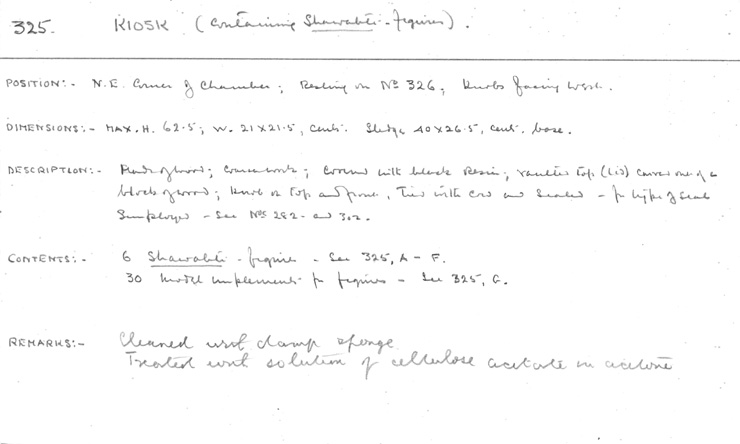 325. KIOSK (Containing Shawabti-figures).
POSITION:- N.E. Corner of Chamber; Resting on No 326; Knobs facing West.
DIMENSIONS:- MAX. H. 62.5; W. 21 X 21.5, cent. Sledge 40 X 26.5, cent. base.
DESCRIPTION:- Made of wood; coarse work; covered with black Resin; vaulted top (lid) carved one of a
block of wood; knob on top and front, Tied with cord and Sealed - for type of seal
employed - See Nos 282 - and 302.
CONTENTS:- 6 Shawabti-figures - See 325, A - F.
30 model implements for figures - See 325, G.
REMARKS:- Cleaned with damp sponge
Treated with solution of cellulose acetate in acetone